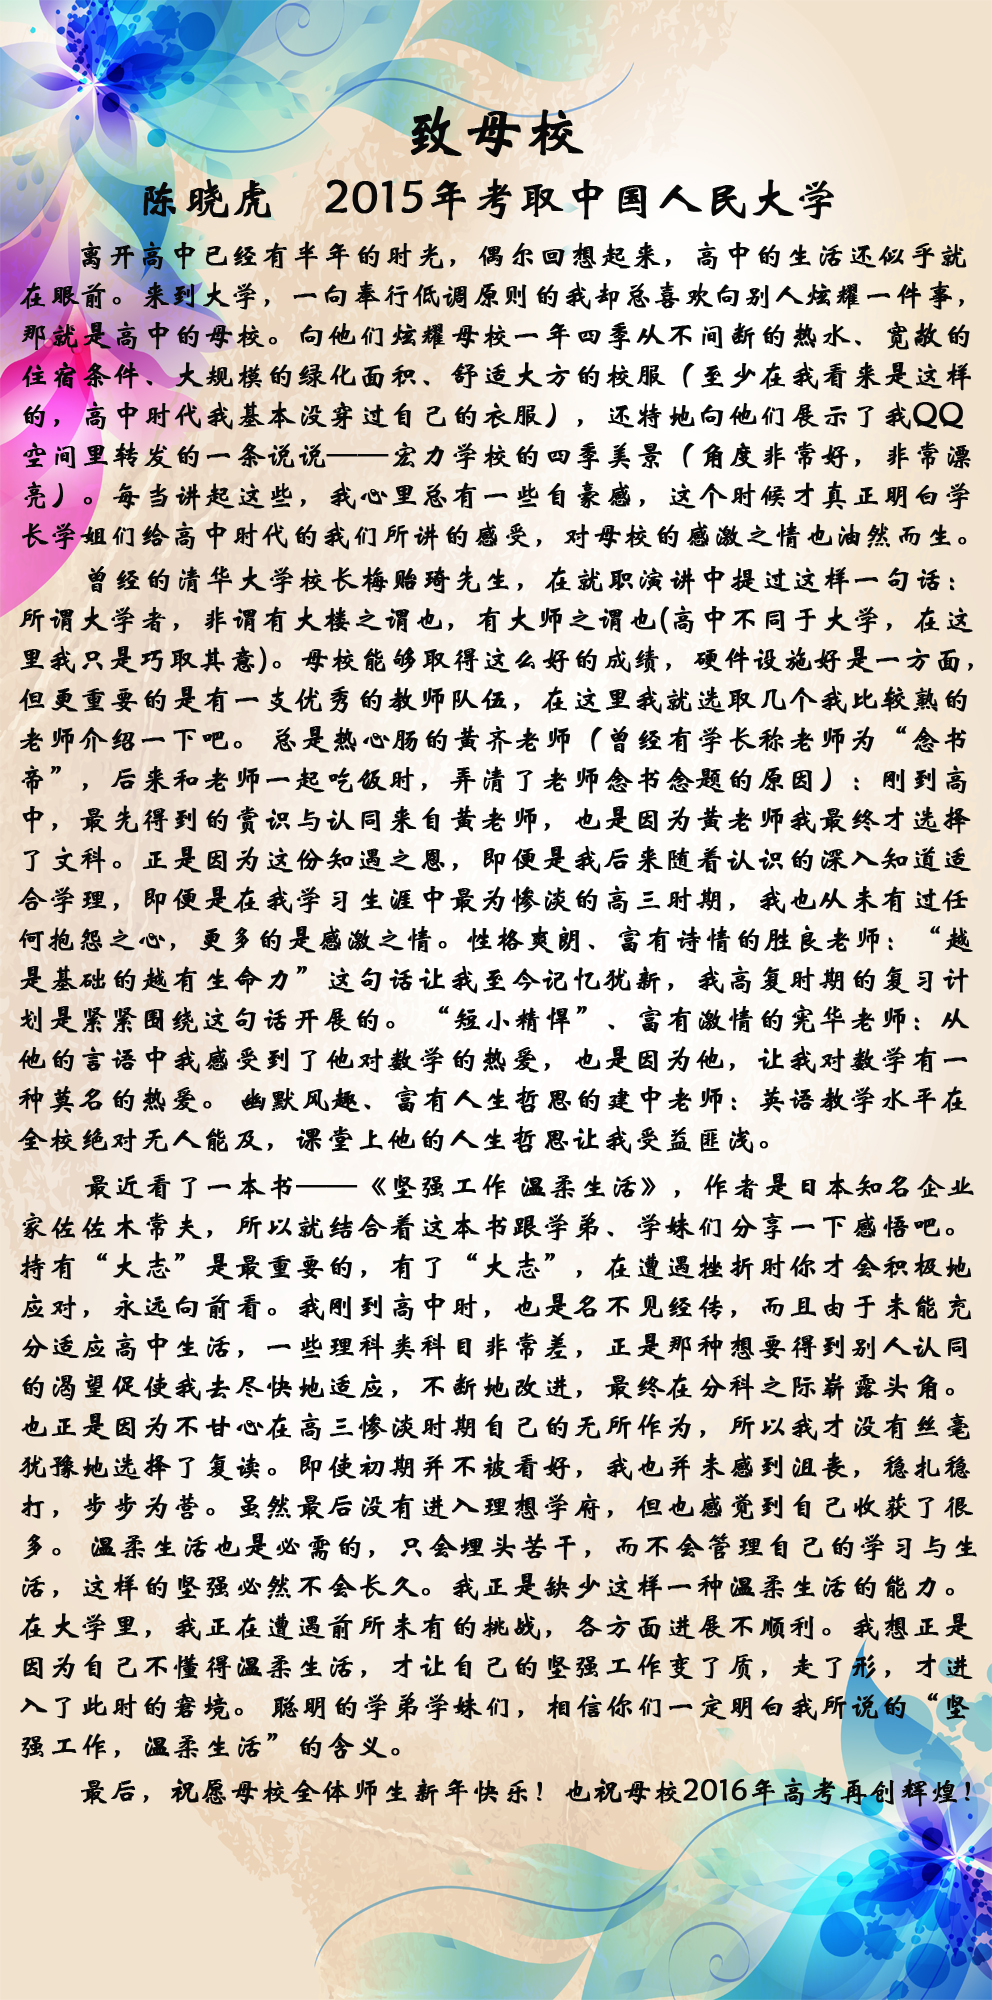 致母校
陈晓虎 2015年考取中国人民大学
离开高中已经有半年的时光，偶尔回想起来，高中的生活还似乎就
在眼前。来到大学，一向奉行低调原则的我却总喜欢向别人炫耀一件事，
那就是高中的母校。向他们炫耀母校一年四季从不间断的热水、宽敞的
住宿条件、大规模的绿化面积、舒适大方的校服（至少在我看来是这样
的，高中时代我基本没穿过自己的衣服），还特地向他们展示了我QQ
空间里转发的一条说说——宏力学校的四季美景（角度非常好，非常漂
亮）。每当讲起这些，我心里总有一些自豪感，这个时候才真正明白学
长学姐们给高中时代的我们所讲的感受，对母校的感激之情也油然而生。
曾经的清华大学校长梅贻琦先生，在就职演讲中提过这样一句话：
所谓大学者，非谓有大楼之谓也，有大师之谓也(高中不同于大学，在这
里我只是巧取其意)。母校能够取得这么好的成绩，硬件设施好是一方面，
但更重要的是有一支优秀的教师队伍，在这里我就选取几个我比较熟的
老师介绍一下吧。 总是热心肠的黄齐老师（曾经有学长称老师为“念书
帝”，后来和老师一起吃饭时，弄清了老师念书念题的原因）：刚到高
中，最先得到的赏识与认同来自黄老师，也是因为黄老师我最终才选择
了文科。正是因为这份知遇之恩，即便是我后来随着认识的深入知道适
合学理，即便是在我学习生涯中最为惨淡的高三时期，我也从未有过任
何抱怨之心，更多的是感激之情。性格爽朗、富有诗情的胜良老师：“越
是基础的越有生命力”这句话让我至今记忆犹新，我高复时期的复习计
划是紧紧围绕这句话开展的。 “短小精悍”、富有激情的宪华老师：从
他的言语中我感受到了他对数学的热爱，也是因为他，让我对数学有一
种莫名的热爱。 幽默风趣、富有人生哲思的建中老师：英语教学水平在
全校绝对无人能及，课堂上他的人生哲思让我受益匪浅。
最近看了一本书——《坚强工作 温柔生活》，作者是日本知名企业
家佐佐木常夫，所以就结合着这本书跟学弟、学妹们分享一下感悟吧。
持有“大志”是最重要的，有了“大志”，在遭遇挫折时你才会积极地
应对，永远向前看。我刚到高中时，也是名不见经传，而且由于未能充
分适应高中生活，一些理科类科目非常差，正是那种想要得到别人认同
的渴望促使我去尽快地适应，不断地改进，最终在分科之际崭露头角。
也正是因为不甘心在高三惨淡时期自己的无所作为，所以我才没有丝毫
犹豫地选择了复读。即使初期并不被看好，我也并未感到沮丧，稳扎稳
打，步步为营。虽然最后没有进入理想学府，但也感觉到自己收获了很
多。 温柔生活也是必需的，只会埋头苦干，而不会管理自己的学习与生
活，这样的坚强必然不会长久。我正是缺少这样一种温柔生活的能力。
在大学里，我正在遭遇前所未有的挑战，各方面进展不顺利。我想正是
因为自己不懂得温柔生活，才让自己的坚强工作变了质，走了形，才进
入了此时的窘境。 聪明的学弟学妹们，相信你们一定明白我所说的“坚
强工作，温柔生活”的含义。
最后，祝愿母校全体师生新年快乐！也祝母校2016年高考再创辉煌！